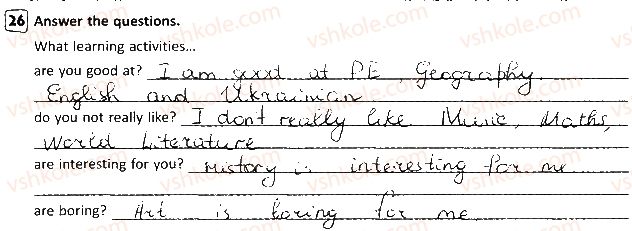 26 Answer the questions.
What learning activities...
are you good at? I am good at P.E, Geography,
English and Ukrainian
do you not really like? I dont really like Music, Maths,
World Literature
are interesting for you? History is interesting for me
are boring? Art is boring for me
vshkole.com